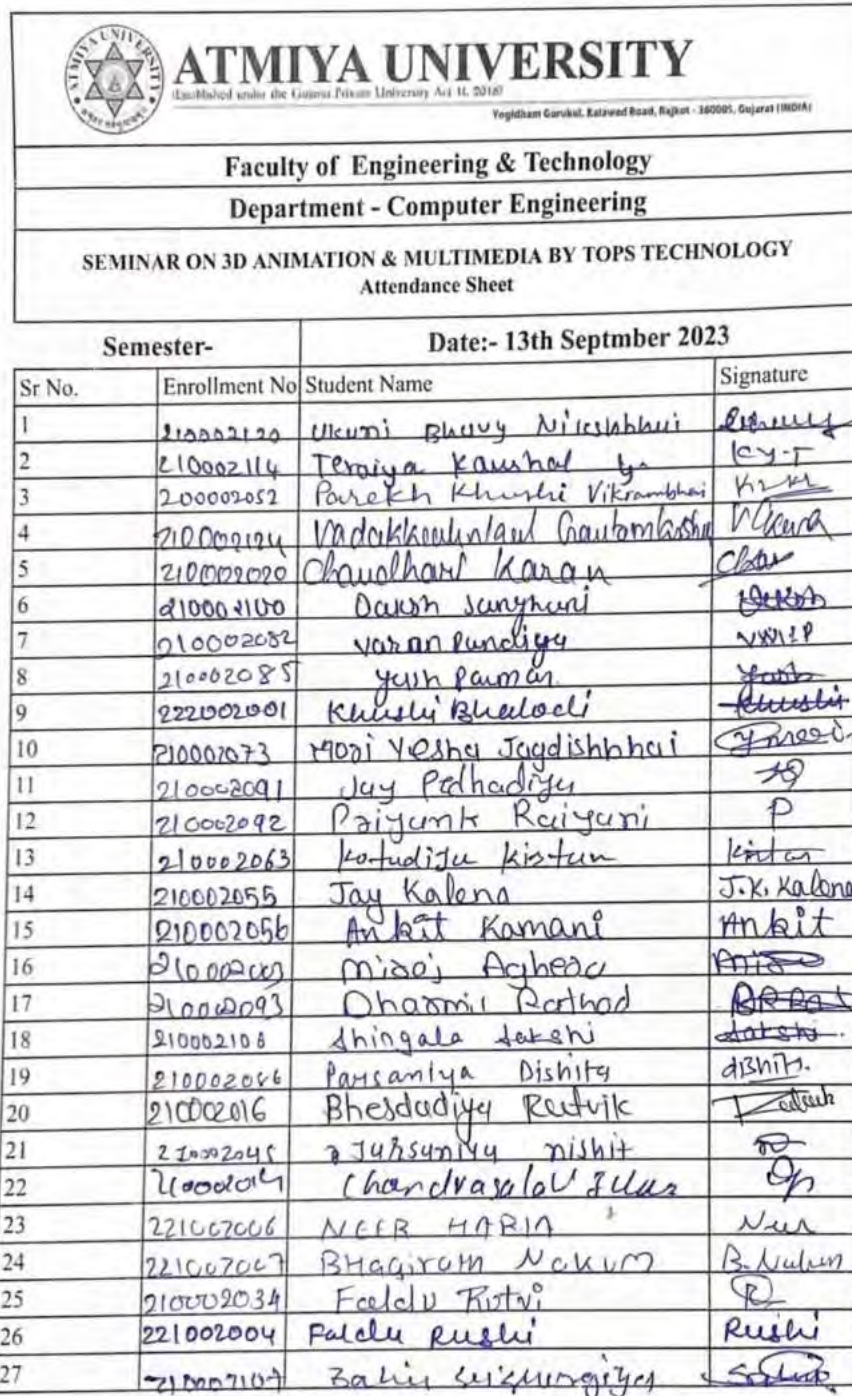 ATMIYA UNIVERSITY
(Established under the Gujarat Private University Act 11, 2018)
Yogidham Gurukul, Kalawad Road, Rajkot - 360005, Gujarat (INDIA)
Faculty of Engineering & Technology
Department - Computer Engineering
SEMINAR ON 3D ANIMATION & MULTIMEDIA BY TOPS TECHNOLOGY
Attendance Sheet
Semester- Date:- 13th Septmber 2023
Sr No. Enrollment No Student Name Signature
1 210002120 Ukani Bhavy Nileshbhai
2 210002114 Teraiya Kaushal y. K.Y.T
3 200002052 Parekh Khushi Vikrambhai
4 210002124
5 210002020 Chaudhari Karan
6 210002100 Daksh Sanghani Daksh
7 210002082 Varan Pandiya
8 210002085 Yash Parmar Yash
9 222002001 Khushi Bhalodi Khushi
10 210002073 Mori Yesha Jagdishbhai
11 210002091 Jay Pedhadiya
12 210002092 Priyank Raiyani P
13 210002063 Kotadiya Kistan
14 210002055 Jay Kalena J.K. Kalena
15 210002056 Ankit Kamani Ankit
16 210002003 Miraj Aghera
17 210002093 Dharmil Rathod
18 210002108 Shingala Sakshi Sakshi
19 210002086 Parsaniya Dishita
20 210002016 Bhesdadiya Rutvik
21 210002045 nishit
22
23 221002006 NEER HARIA Neer
24 221002007 BHagiram Nakum B. Nakum
25 210002034 Faldu Rutvi R
26 221002004 Faldu Rushi Rushi
27 210002107